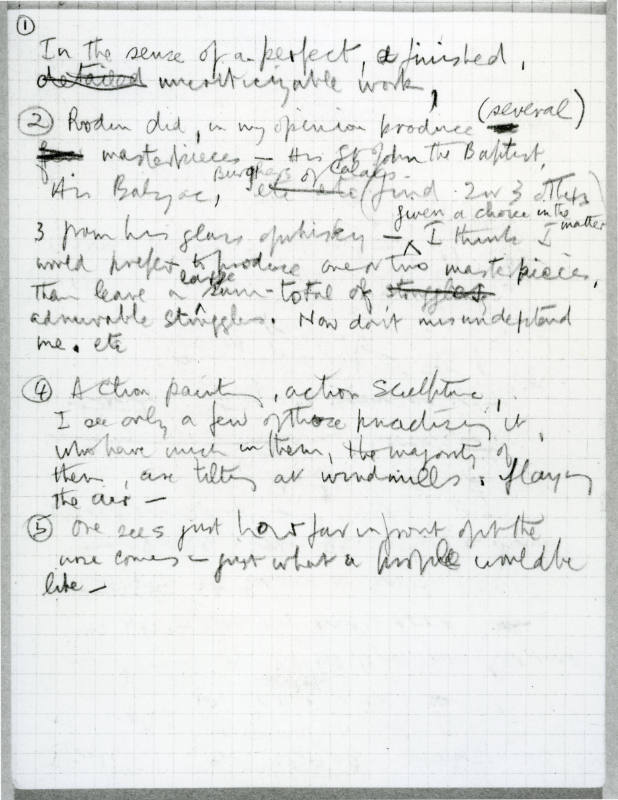 ①
In the sense of a perfect, a finished,
detailed uncriticizable work,
② Rodin did, in my opinion produce (several)
few masterpieces — His St John the Baptist,
Burghers of Calais.
His Balzac, etc etc (find 2 or 3 others)
given a choice in the matter
3 from his glass of whisky — I think I
would prefer to produce one or two masterpieces,
large
than leave a sum-total of struggles
admirable struggles. Now don't misunderstand
me. etc
④ Action painting, action sculpture,
I see only a few of those practising it,
who have much in them, the majority of
them, are tilting at windmills. flaying
the air —
⑤ One sees just how far in front of it the
nose comes – just what a profile would be
like —